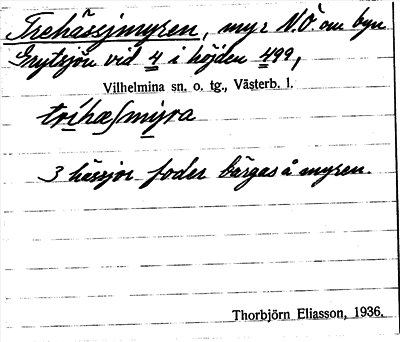 Trehässjmyren, myr N.Ö om byn
Grytsjön vid 4 i höjden 499,
Vilhelmina sn. o. tg., Västerb. l.
tríhæʃmýra
3 hässjor foder bärgas å myren.
Thorbjörn Eliasson, 1936.